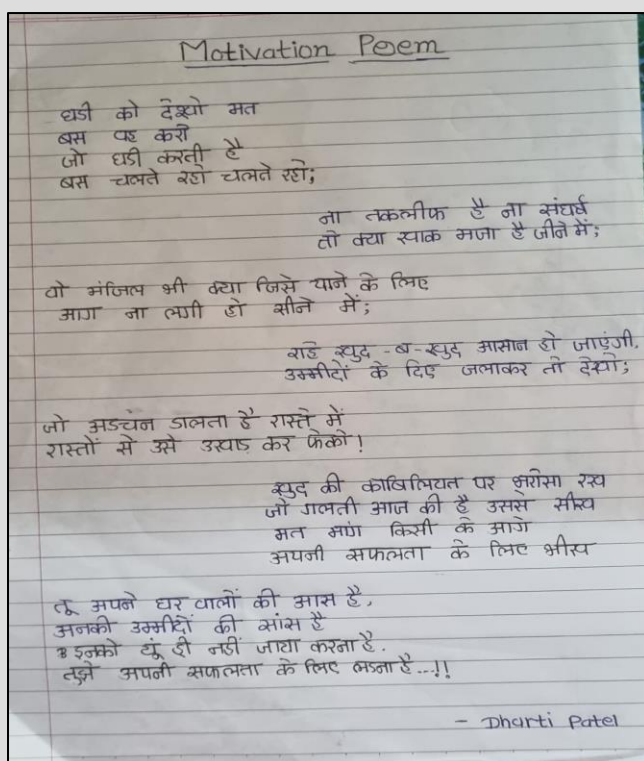 Motivation Poem
घडी को देखो मत
बस वह करो
जो घडी करती है
बस चलते रहो चलते रहो;
ना तकलीफ है ना संघर्ष
तो क्या खाक मजा है जीने में;
वो मंजिल भी क्या जिसे पाने के लिए
आग ना लगी हो सीने में;
राहे खुद-ब-खुद आसान हो जाएंगी,
उम्मीदों के दिए जलाकर तो देखो;
जो अडचन डालता है रास्ते में
रास्तों से उसे उखाड़ कर फेंको!
खुद की काबिलियत पर भरोसा रख
जो गलती आज की है उससे सीख
मत मांग किसी के आगे
अपनी सफलता के लिए भीख
तू अपने घर वालों की आस है,
अनकी उम्मीदों की सांस है
इनको यूं ही नहीं जाया करना है.
तुझे अपनी सफलता के लिए लडना है...!!
- Dharti Patel